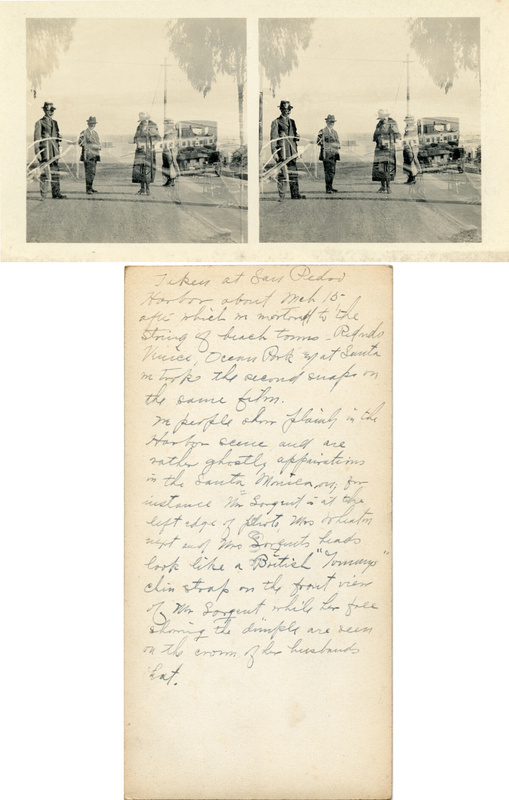 Taken at San Pedro
Harbor about Mch 15
after which we motored to the
string of beach towns - Redondo
Venice, Ocean Park & at Santa
M took the second snaps on
the same film.
We people show plainly in the
Harbor scene and are
rather ghostly apparations
in the Santa Monica, for
instance Mr Sargent is at the
left edge of photo, Mrs Wheaton
next and Mrs Sargents heads
look like a British "Tommys"
chin strap on the front view
of Mr Sargent while her face
showing the dimple are seen
on the crown of her husbands
hat.